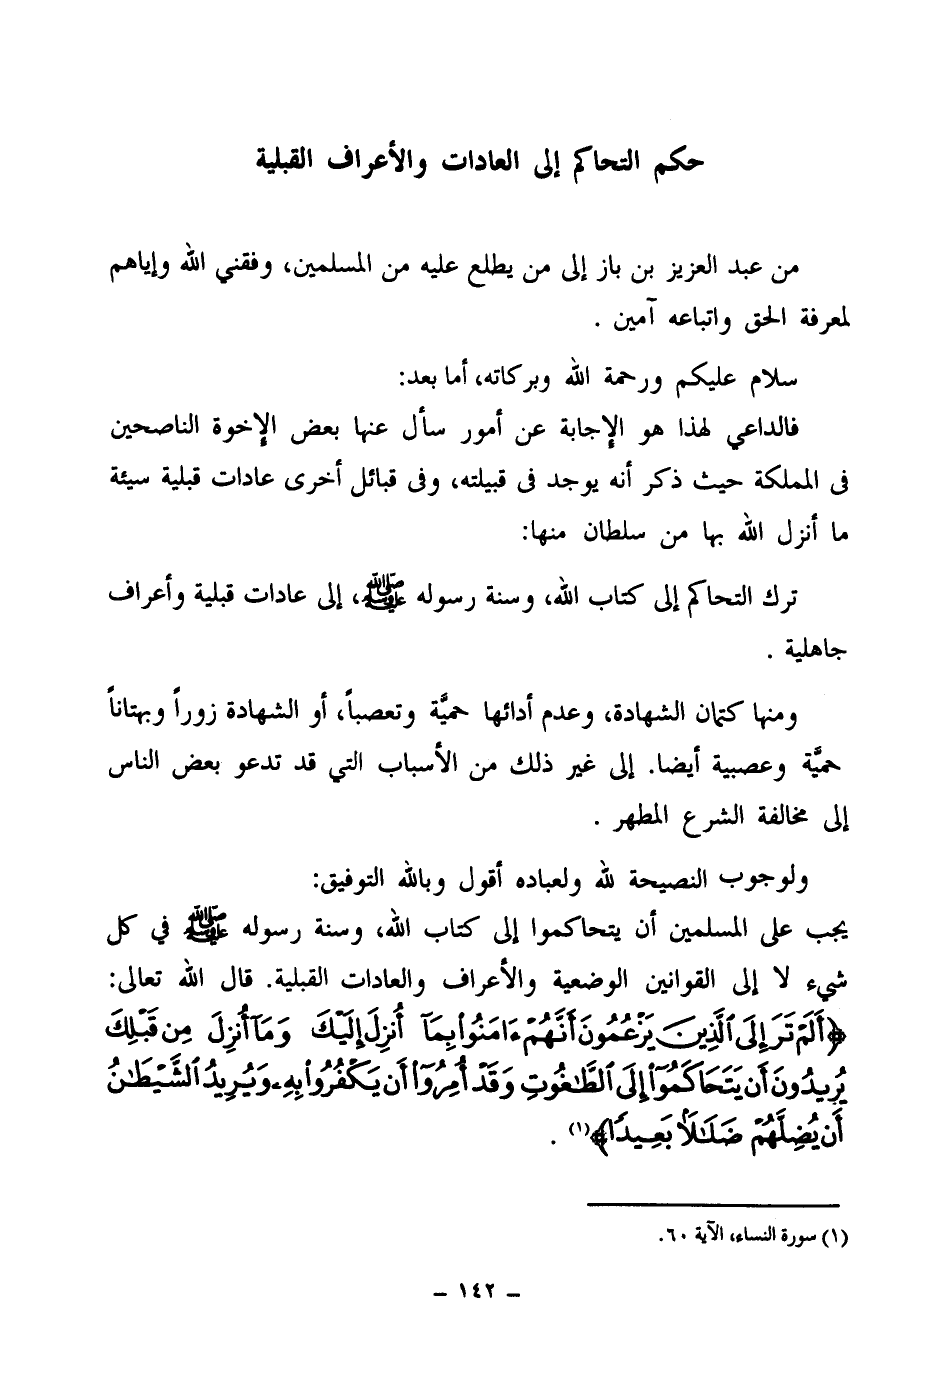 حكم التحاكم إلى العادات والأعراف القبلية
من عبد العزيز بن باز إلى من يطلع عليه من المسلمين، وفقني الله وإياهم
لمعرفة الحق واتباعه آمين .
سلام عليكم ورحمة الله وبركاته، أما بعد:
فالداعي لهذا هو الإجابة عن أمور سأل عنها بعض الإخوة الناصحين
فى المملكة حيث ذكر أنه يوجد فى قبيلته، وفى قبائل أخرى عادات قبلية سيئة
ما أنزل الله بها من سلطان منها:
ترك التحاكم إلى كتاب الله، وسنة رسوله ﷺ، إلى عادات قبلية وأعراف
جاهلية .
ومنها كتمان الشهادة، وعدم أدائها حميَّة وتعصباً، أو الشهادة زوراً وبهتاناً
حميَّة وعصبية أيضا. إلى غير ذلك من الأسباب التي قد تدعو بعض الناس
إلى مخالفة الشرع المطهر .
ولوجوب النصيحة لله ولعباده أقول وبالله التوفيق:
يجب على المسلمين أن يتحاكموا إلى كتاب الله، وسنة رسوله ﷺ في كل
شيء لا إلى القوانين الوضعية والأعراف والعادات القبلية. قال الله تعالى:
﴿أَلَمْ تَرَ إِلَى ٱلَّذِينَ يَزْعُمُونَ أَنَّهُمْ ءَامَنُوا۟ بِمَآ أُنزِلَ إِلَيْكَ وَمَآ أُنزِلَ مِن قَبْلِكَ
يُرِيدُونَ أَن يَتَحَاكَمُوٓا۟ إِلَى ٱلطَّٰغُوتِ وَقَدْ أُمِرُوٓا۟ أَن يَكْفُرُوا۟ بِهِۦ وَيُرِيدُ ٱلشَّيْطَٰنُ
أَن يُضِلَّهُمْ ضَلَٰلًۢا بَعِيدًا﴾(١) .
(١) سورة النساء، الآية ٦٠.
- ١٤٢ -